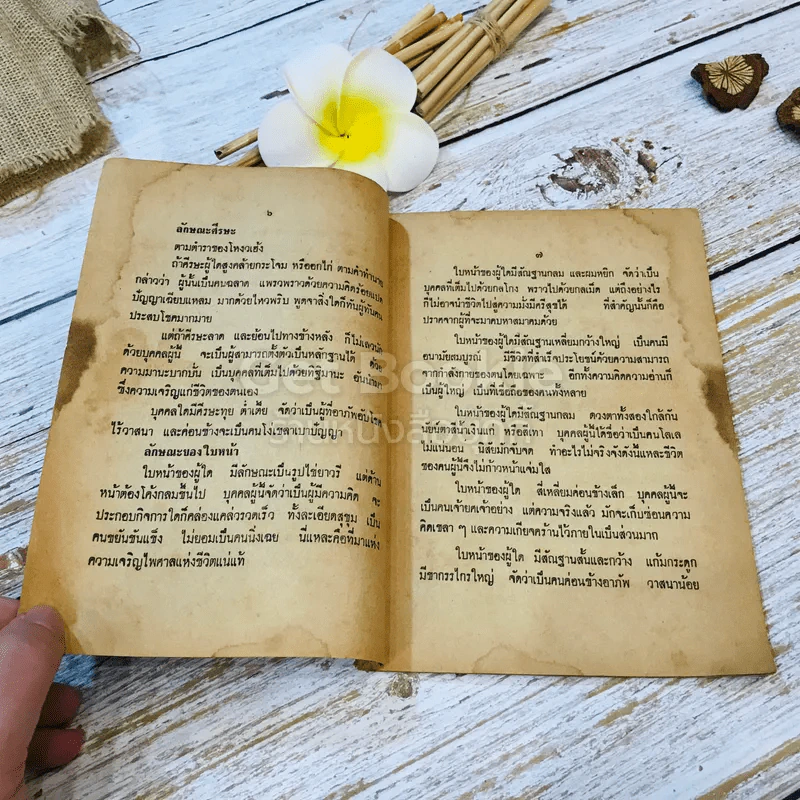 ๖
ลักษณะศีรษะ
ตามตำราของโหงวเฮ้ง
ถ้าศีรษะผู้ใดสูงคล้ายกระโจม หรืออกไก่ ตามคำทำนาย
กล่าวว่า ผู้นั้นเป็นคนฉลาด แพรวพราวด้วยความคิดร้อยแปด
ปัญญาเฉียบแหลม มากด้วยไหวพริบ พูดจาสิ่งใดก็ทันผู้ทันคน
ประสบโชคมากมาย
แต่ถ้าศีรษะลาด และย้อนไปทางข้างหลัง ก็ไม่เลวนัก
ด้วยบุคคลผู้นี้ จะเป็นผู้สามารถตั้งตัวเป็นหลักฐานได้ ด้วย
ความมานะบากบั่น เป็นบุคคลที่เต็มไปด้วยทิฐิมานะ อันนำมา
ซึ่งความเจริญแก่ชีวิตของตนเอง
บุคคลใดมีศีรษะทุย ต่ำเตี้ย จัดว่าเป็นผู้ที่อาภัพอับโชค
ไร้วาสนา และค่อนข้างจะเป็นคนโง่เขลาเบาปัญญา
ลักษณะของใบหน้า
ใบหน้าของผู้ใด มีลักษณะเป็นรูปไข่ยาวรี แต่ด้าน
หน้าต้องโค้งกลมขึ้นไป บุคคลผู้นี้จัดว่าเป็นผู้มีความคิด จะ
ประกอบกิจการใดก็คล่องแคล่วรวดเร็ว ทั้งละเอียดสุขุม เป็น
คนขยันขันแข็ง ไม่ยอมเป็นคนนิ่งเฉย นี่แหละคือที่มาแห่ง
ความเจริญไพศาลแห่งชีวิตแน่แท้
๗
ใบหน้าของผู้ใดมีสัณฐานกลม และผมหยิก จัดว่าเป็น
บุคคลที่เต็มไปด้วยกลโกง พราวไปด้วยกลเม็ด แต่ถึงอย่างไร
ก็ไม่อาจนำชีวิตไปสู่ความมั่งมีศรีสุขได้ ที่สำคัญนั้นก็คือ
ปราศจากผู้ที่จะมาคบหาสมาคมด้วย
ใบหน้าของผู้ใดมีสัณฐานเหลี่ยมกว้างใหญ่ เป็นคนมี
อนามัยสมบูรณ์ มีชีวิตที่สำเร็จประโยชน์ด้วยความสามารถ
จากกำลังกายของตนโดยเฉพาะ อีกทั้งความคิดความอ่านก็
เป็นผู้ใหญ่ เป็นที่เชื่อถือของคนทั้งหลาย
ใบหน้าของผู้ใดมีสัณฐานกลม ดวงตาทั้งสองใกล้กัน
นัยน์ตาสีน้ำเงินแก่ หรือสีเทา บุคคลผู้นี้ได้ชื่อว่าเป็นคนโลเล
ไม่แน่นอน นิสัยมักจับจด ทำอะไรไม่จริงจังดังนี้แหละชีวิต
ของคนผู้นี้จึงไม่ก้าวหน้าแจ่มใส
ใบหน้าของผู้ใด สี่เหลี่ยมค่อนข้างเล็ก บุคคลผู้นี้จะ
เป็นคนเจ้ายศเจ้าอย่าง แต่ความจริงแล้ว มักจะเก็บซ่อนความ
คิดเขลา ๆ และความเกียจคร้านไว้ภายในเป็นส่วนมาก
ใบหน้าของผู้ใด มีสัณฐานสั้นและกว้าง แก้มกระดูก
มีขากรรไกรใหญ่ จัดว่าเป็นคนค่อนข้างอาภัพ วาสนาน้อย